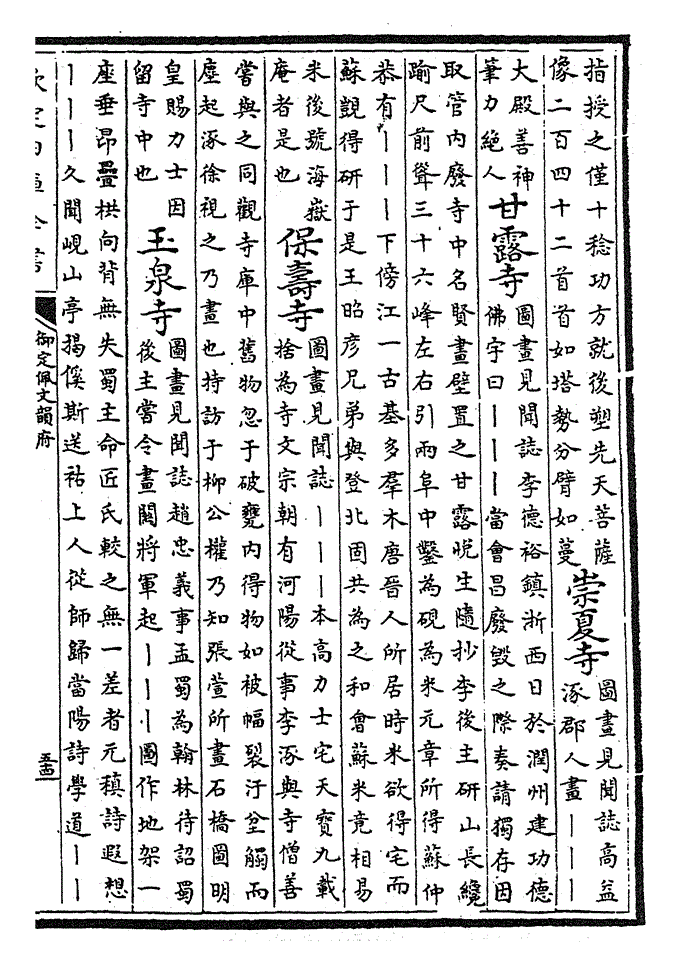 指授之僅十稔功方就後塑先天菩薩
像二百四十二首首如塔勢分臂如蔓
崇夏寺
圖畫見聞誌高益
涿郡人畫｜｜｜
大殿善神
筆力絕人
甘露寺
圖畫見聞誌李德裕鎮浙西日於潤州建功德
佛宇曰｜｜｜當會昌廢毀之際奏請獨存因
取管内廢寺中名賢畫壁置之甘露悅生隨抄李後主研山長纔
踰尺前聳三十六峰左右引兩阜中鑿為硯為米元章所得蘇仲
恭有｜｜｜下傍江一古基多羣木唐晉人所居時米欲得宅而
蘇覬得研于是王昭彦兄弟與登北固共為之和會蘇米竟相易
米後號海嶽
庵者是也
保壽寺
圖畫見聞誌｜｜｜本高力士宅天寶九載
捨為寺文宗朝有河陽從事李涿與寺僧善
嘗與之同觀寺庫中舊物忽于破甕内得物如被幅裂汙坌觸而
塵起涿徐視之乃畫也持訪于柳公權乃知張萱所畫石橋圖明
皇賜力士因
留寺中也
玉泉寺
圖畫見聞誌趙忠義事孟蜀為翰林待詔蜀
後主嘗令畫關將軍起｜｜｜圖作地架一
座垂昂疊栱向背無失蜀主命匠氏較之無一差者元稹詩遐想
｜｜｜久聞峴山亭揭傒斯送祜上人從師歸當陽詩學道｜｜
欽定四庫全書
御定佩文韻府